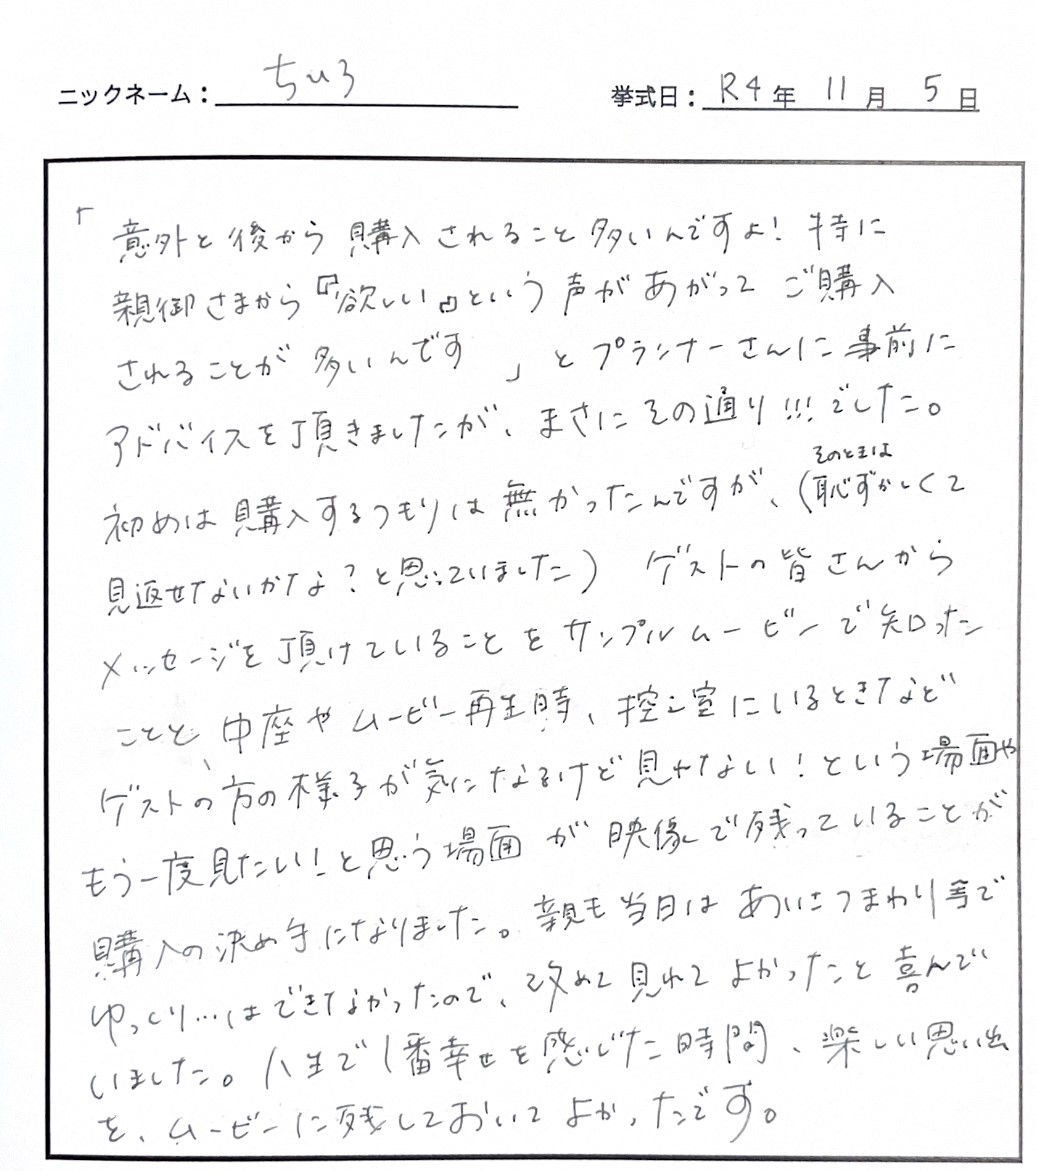 ニックネーム： ちひろ 挙式日： R4年 11月 5日
「意外と後から購入されること多いんですよ！特に
親御さまから『欲しい』という声があがってご購入
されることが多いんです」とプランナーさんに事前に
アドバイスを頂きましたが、まさにその通り!!!でした。
そのときは
初めは購入するつもりは無かったんですが、(恥ずかしくて
見返せないかな？と思っていました) ゲストの皆さんから
メッセージを頂けていることをサンプルムービーで知った
ことと、中座やムービー再生時、控え室にいるときなど
ゲストの方の様子が気になるけど見れない！という場面や
もう一度見たい！と思う場面が映像で残っていることが
購入の決め手になりました。親も当日はあいさつまわり等で
ゆっくり…はできなかったので、改めて見れてよかったと喜んで
いました。人生で1番幸せを感じた時間、楽しい思い出
を、ムービーに残しておいてよかったです。